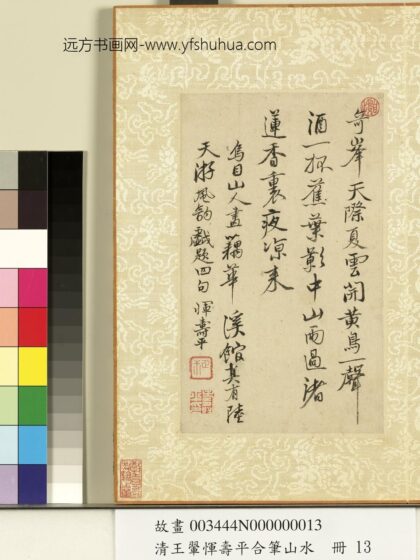 远方书画网-www.yfshuhua.com
奇峯天際夏雲開黃鳥一聲
酒一杯蕉葉影中山雨過渚
蓮香裏夜凉来
烏目山人畫藕華溪館真有陸
天游風韵戲題四句 惲壽平
故畫 003444N000000013
清王翬惲壽平合筆山水 冊 13